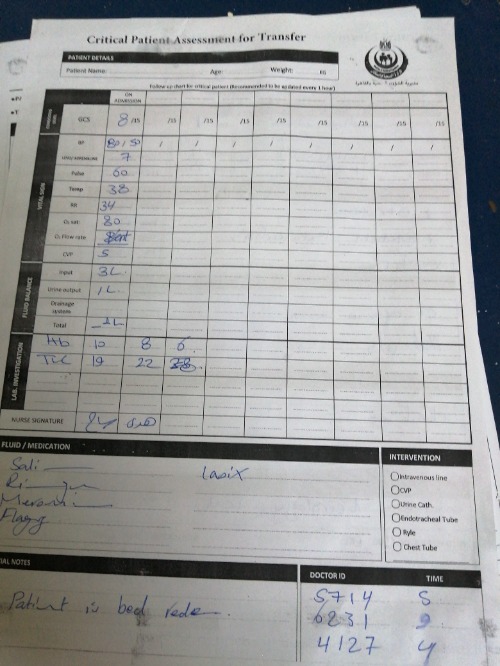 Critical Patient Assessment for Transfer
PATIENT DETAILS
Patient Name: Age: Weight: KG
Follow up chart for critical patient (Recommended to be updated every 1 hour)
ON ADMISSION
GCS 8 /15 /15 /15 /15 /15 /15 /15 /15
VITAL SIGN
BP 80 / 50 / / / / / / /
7
Pulse 60
Temp 38
RR 34
O₂ sat. 80
O₂ Flow rate
CVP 5
FLUID BALANCE
Input 3L
Urine output 1L
Drainage system
Total
LAB. INVESTIGATION
Hb 10 8 6
TLC 19 22
NURSE SIGNATURE
FLUID / MEDICATION
INTERVENTION
Lasix
Intravenous line
CVP
Urine Cath.
Endotracheal Tube
Ryle
Chest Tube
Flagy
IAL NOTES
Patient is bed
DOCTOR ID TIME
5714 5
6231 9
4127 4